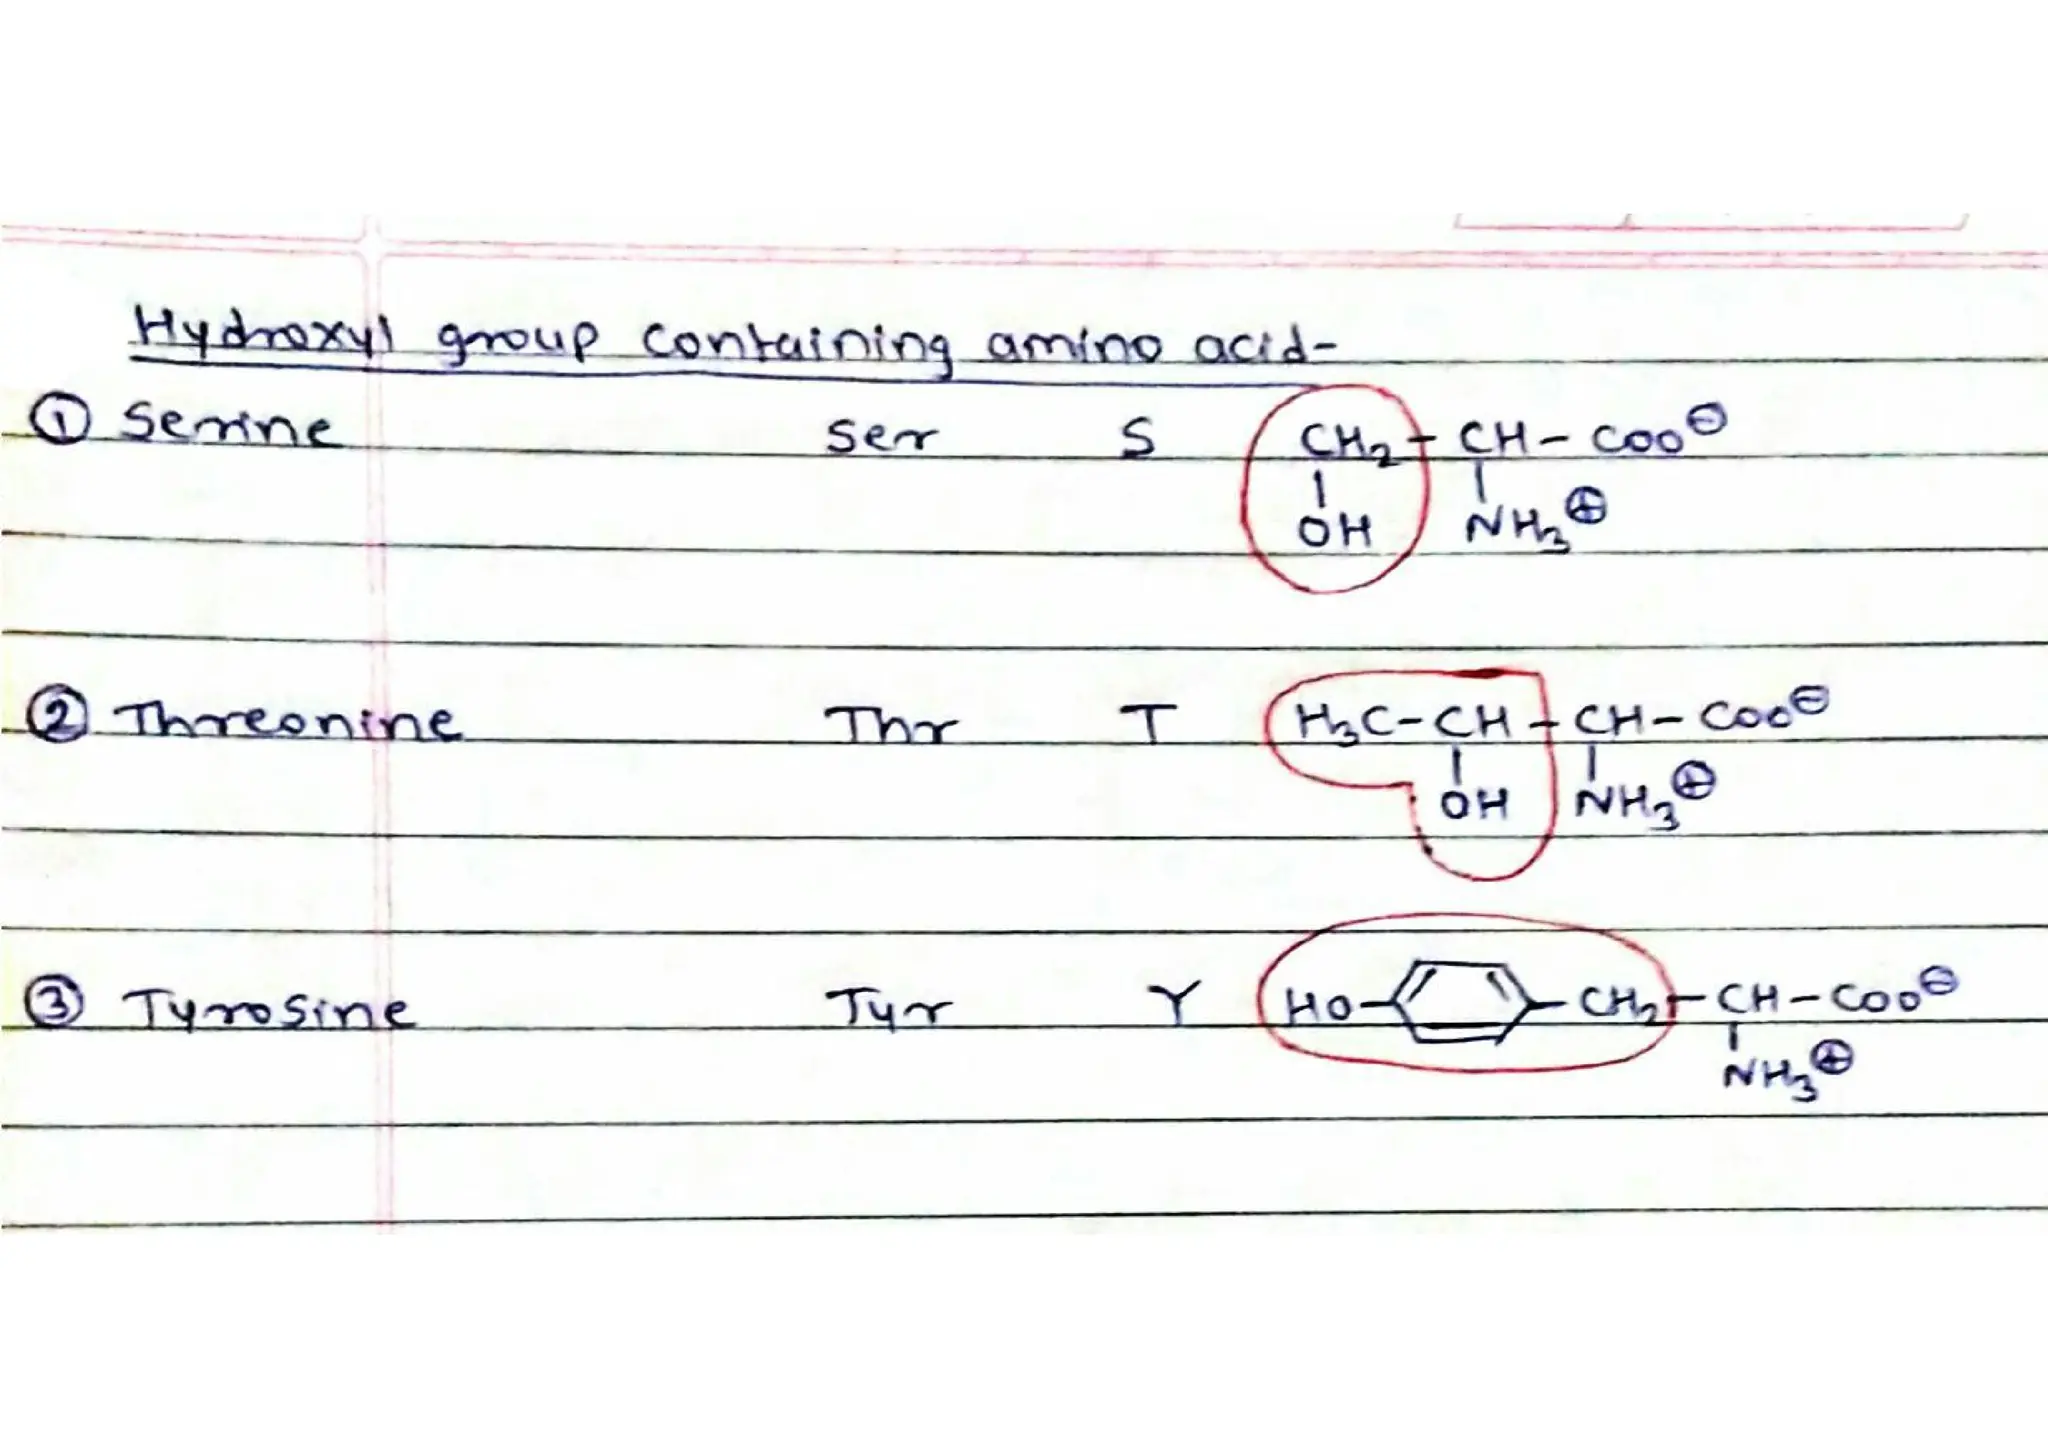 Hydroxyl group containing amino acid-
① Serine Ser S CH₂-CH-COO⊖
OH NH₃⊕
② Threonine Thr T H₃C-CH-CH-COO⊖
OH NH₃⊕
③ Tyrosine Tyr Y HO- -CH₂-CH-COO⊖
NH₃⊕